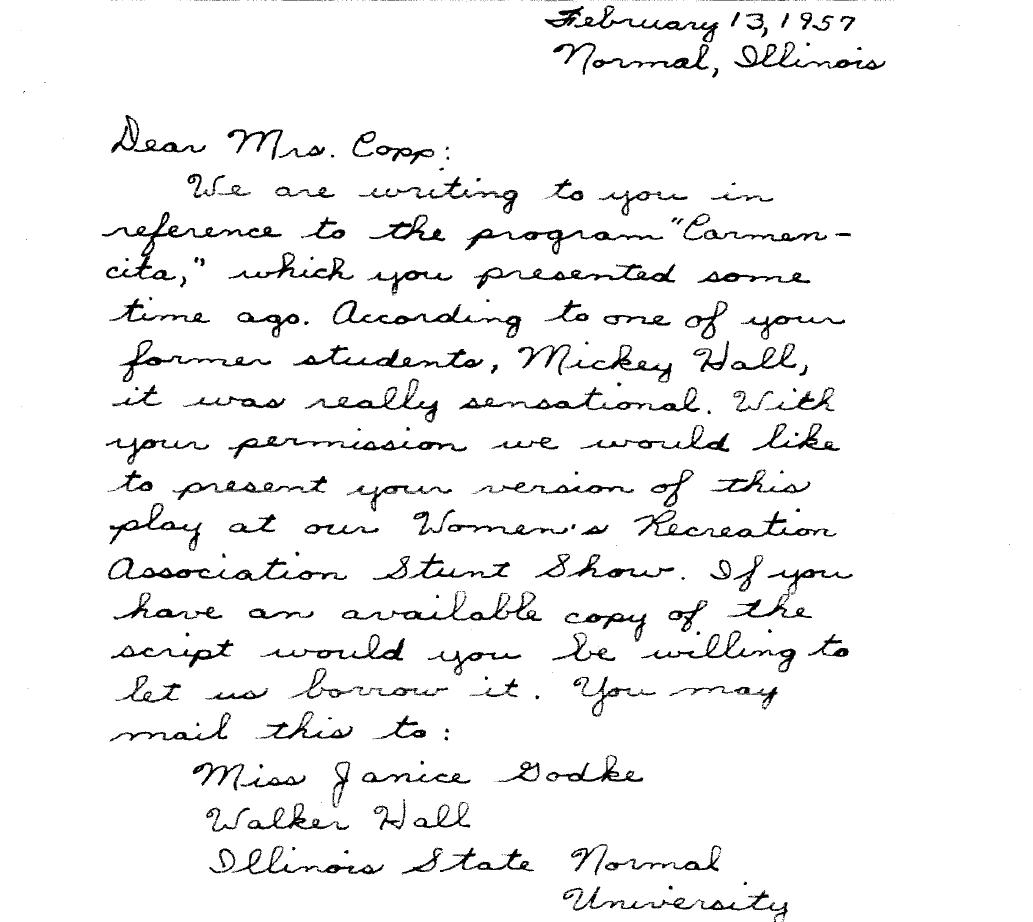 February 13, 1957
Normal, Illinois
Dear Mrs. Copp:
We are writing to you in
reference to the program "Carmen-
cita," which you presented some
time ago. According to one of your
former students, Mickey Hall,
it was really sensational. With
your permission we would like
to present your version of this
play at our Women's Recreation
Association Stunt Show. If you
have an available copy of the
script would you be willing to
let us borrow it. You may
mail this to:
Miss Janice Godke
Walker Hall
Illinois State Normal
University